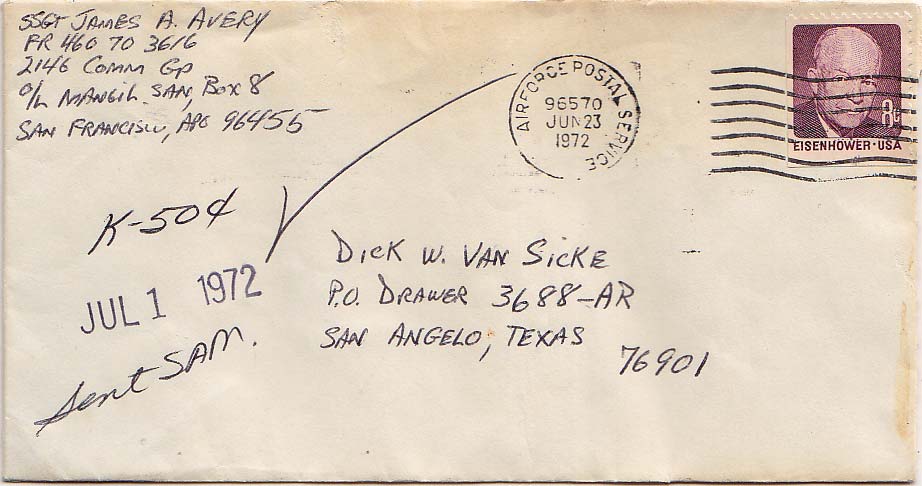 SSGT JAMES A. AVERY
FR 460 70 3616
2146 COMM GP
O/L MANGIL SAN, BOX 8
SAN FRANCISCO, APO 96455
AIR FORCE POSTAL SERVICE
96570
JUN 23
1972
8¢
EISENHOWER·USA
K-50¢
JUL 1 1972
Sent SAM.
DICK W. VAN SICKE
P.O. DRAWER 3688-AR
SAN ANGELO, TEXAS
76901